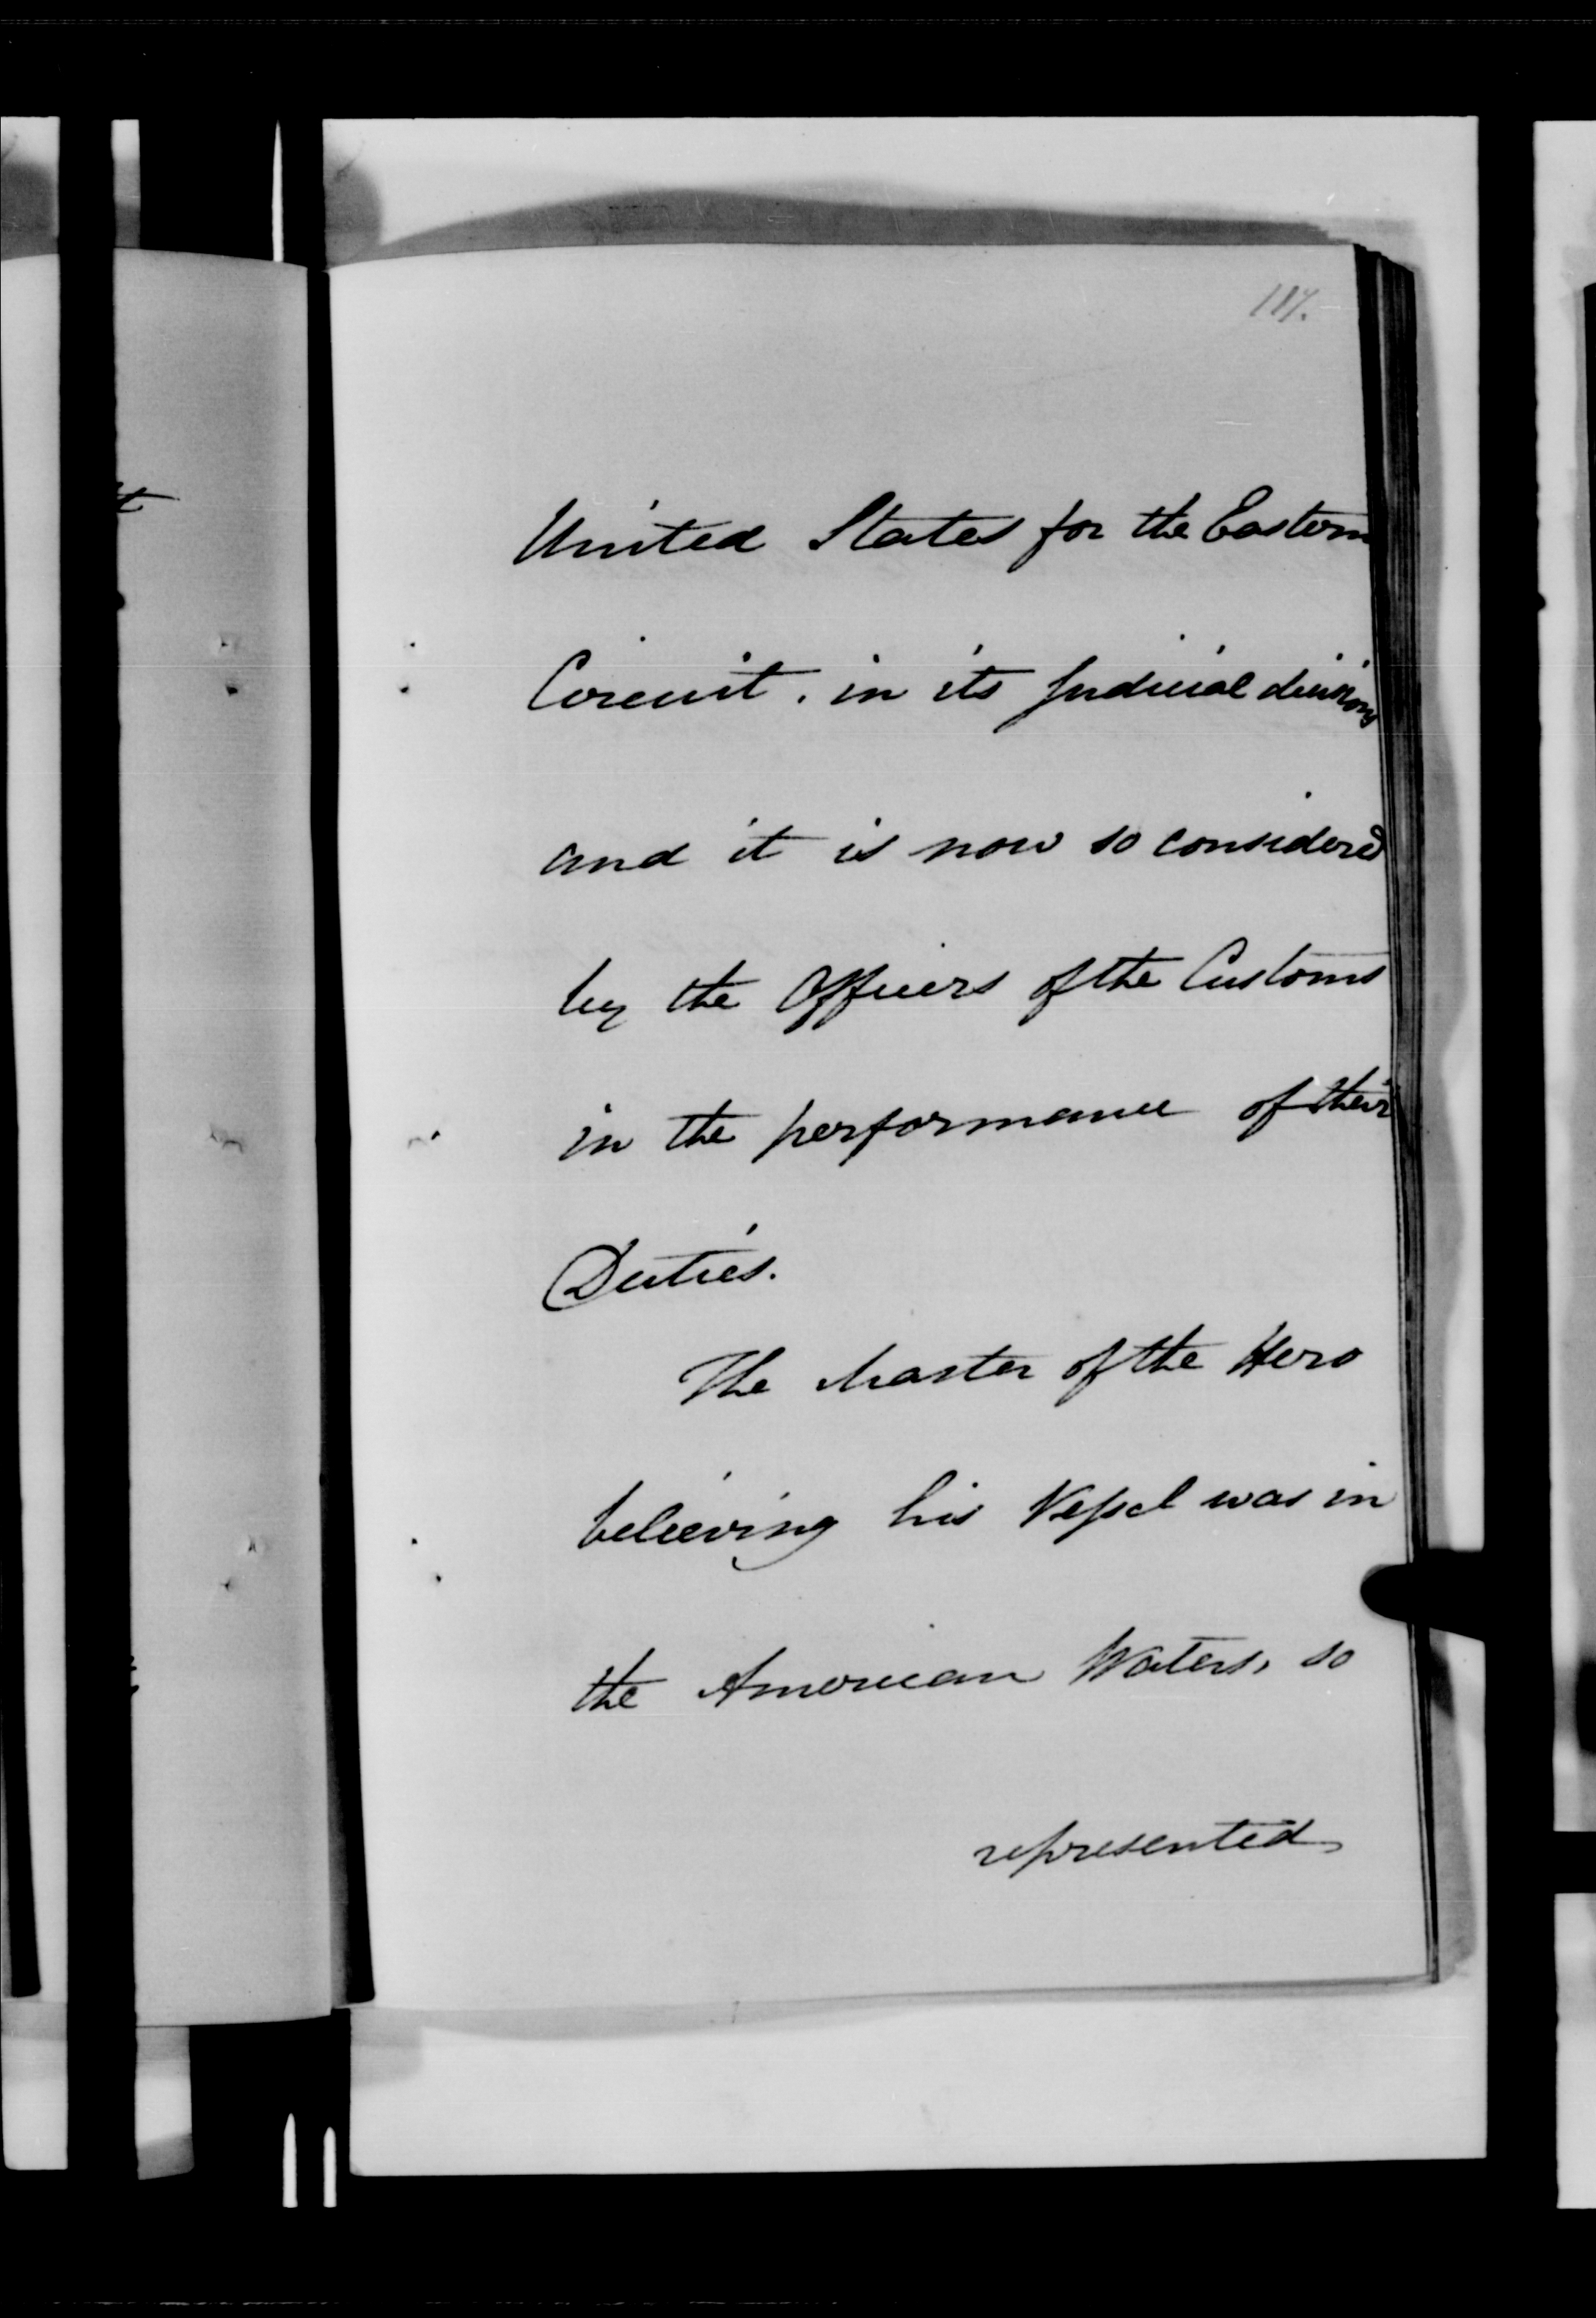 117.
United States for the Eastern
Circuit. in its Judicial decisions
and it is now so considered
by the Officers of the Customs
in the performance of their
Duties.
The Master of the Hero
believing his Vessel was in
the American Waters, so
represented